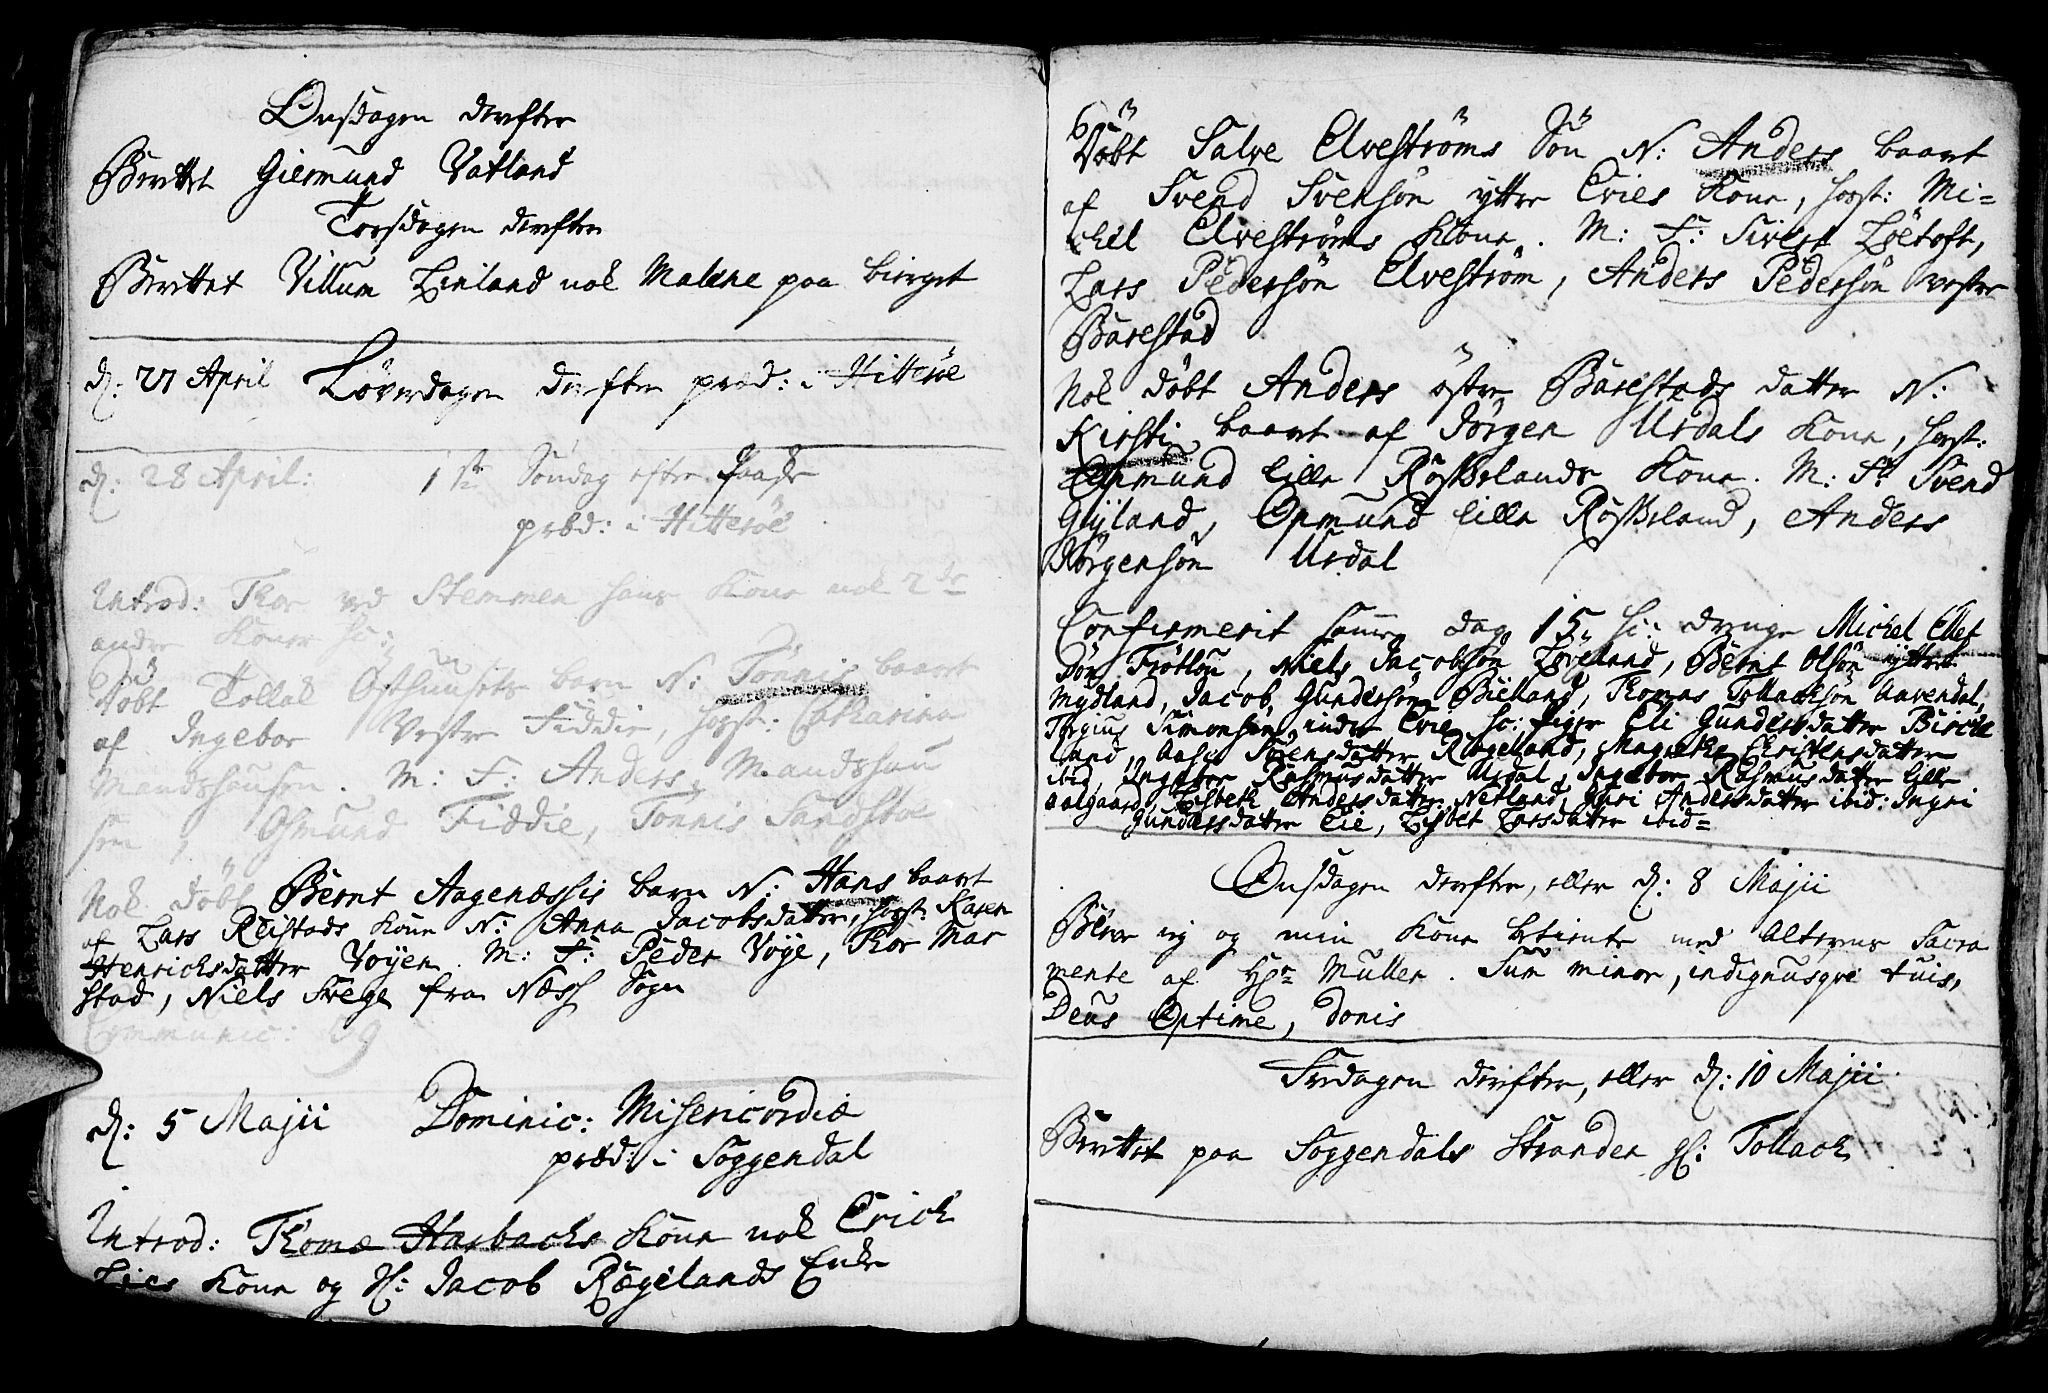 Onsdagen derefter
Berettet Giermund Vatland
Torsdagen derefter
Berettet Villum Linland nok Malene paa bierget
d: 27 April Løverdagen derefter præd: i Hitterøe
d: 28 April: 1ste Søndag efter Paaske
præd: i Hitterøe
Introd: Thor ved Stemmen hans Kone nok 2de
andre Koner
Døbt Tollak Osthuusets barn N: Tønnis baaret
af Ingebor Vestre Fiddie, hosst: Catharina
Mandshausen. M: F: Anders Mandshau
sen, Osmund Fiddie, Tønnis Sandsboe
Nok døbt Bernt Aagenæssis barn N: Hans baaret
af Lars Reistads Kone N: Anna Jacobsdatter, hosst: Karen
Henrichsdatter Voyen. M: F: Peder Voye, Thor Mar
stad, Niels Frege fra Næss Sogn
Communic: 69
d: 5 Majii Dominic: Misericordiæ
præd: i Soggendal
Introd: Thomæ Harbachs Kone nok Erich
Lies Kone og Sl: Jacob Rægelands Enke
Døbt Salve Elvestrøms Søn N: Anders baaret
af Svend Svensøn yttre Eries Kone, hosst: Mi=
chel Elvestrøms Kone. M: F: Sivert Løetoft,
Lars Pedersøn Elvestrøm, Anders Pedersøn vestre
Barestad
Nok døbt Anders østre Barestads datter N:
Kirsti baaret af Jørgen Ursdals Kone, hosst:
Omund lille Røsslands Kone. M: F: Svend
Gyland, Omund lille Røssland, Anders
Jørgensøn Ursdal
Confirmerit samme dag 15, sc: drenge Michel Ellef
søn Frøtlou, Niels Jacobsøn Løgland, Bernt Olsøn yttre
Mydland, Jacob Gundersøn Bieland, Thomas Tollachsøn Aavendal,
Torgius Simonsøn, indre Erie sc: piger Eli Gundersdatter Birche
land, Aase Svensdatter Rægeland, Magrethe Christensdatter
ibid, Ingebor Rasmusdatter Ursdal, Ingebor Rasmusdatter lille
Aalgaard, Lisbeth Andersdatter Netland, Guri Andersdatter ibid: Ingri
Gundersdatter Eie, Lisbet Larsdatter ibid=
Onsdagen derefter, eller d: 8 Majii
Blev ieg og min Kone betiente med Alterens Sacra
mente af Hr Muller. Sum minor, indignusqve tuis,
Deus Optime, donis
Fredagen derefter, eller d: 10 Majii
Berettet paa Soggendals Stranden gl: Tollach